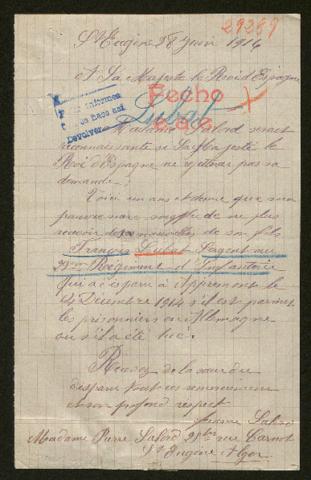 29289
St Eugène 28 Juin 1916
A Sa Majesté le Roi d'Espagne
Fecho
Lubat
Madame Salord serait
reconnaissante si Sa Majesté le
Roi d'Espagne ne rejetterai pas sa
demande.
Voici un an et demie que mon
pauvre mari souffre de ne plus
recevoir des nouvelles de son fils
François Lubat Sergent au
Régiment d'Infanterie
qui a disparu à Apremont le
Décembre 1914 s'il est parmi
les prisonniers en Allemagne
ou s'il a été tué.
Recevez de la mère du
disparu tout ses remerciements
et son profond respect
Jeanne Salord
Madame Pierre Salord 21 bis rue Carnot
St Eugène Alger